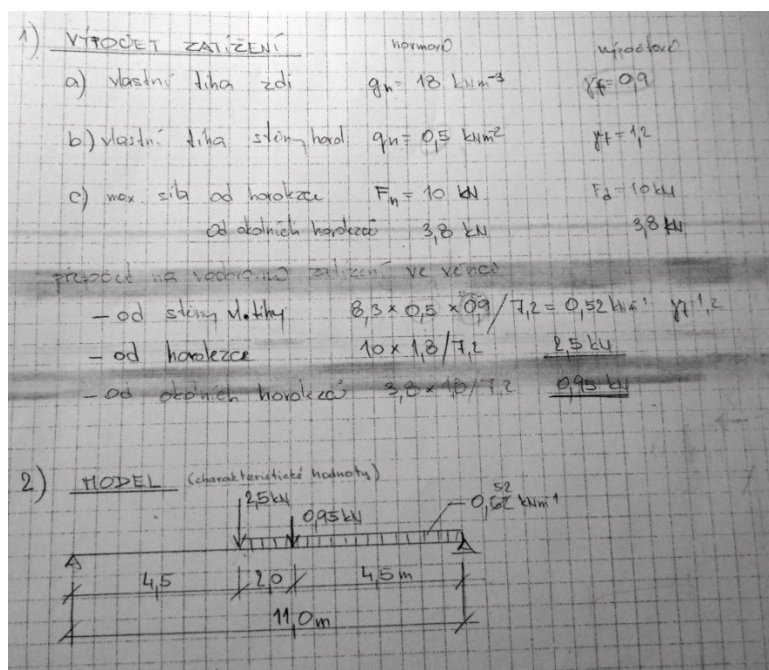 1) VÝPOČET ZATÍŽENÍ normové výpočtové
a) vlastní tíha zdi gn = 18 kNm⁻³ γf = 0,9
b) vlastní tíha stěny horol. qn = 0,5 kNm² γf = 1,2
c) max. síla od horolezce Fn = 10 kN Fd = 10 kN
od okolních horolezců 3,8 kN 3,8 kN
přepočet na vodorovné zatížení ve věnci
- od stěny vl. tíhy 8,3 × 0,5 × 0,9 / 7,2 = 0,52 kNm⁻¹ γf = 1,2
- od horolezce 10 × 1,8 / 7,2 2,5 kN
- od okolních horolezců 3,8 × 1,8 / 7,2 0,95 kN
2) MODEL (charakteristické hodnoty)
52
2,5 kN 0,62 kNm⁻¹
0,95 kN
4,5 2,0 4,5 m
11,0 m